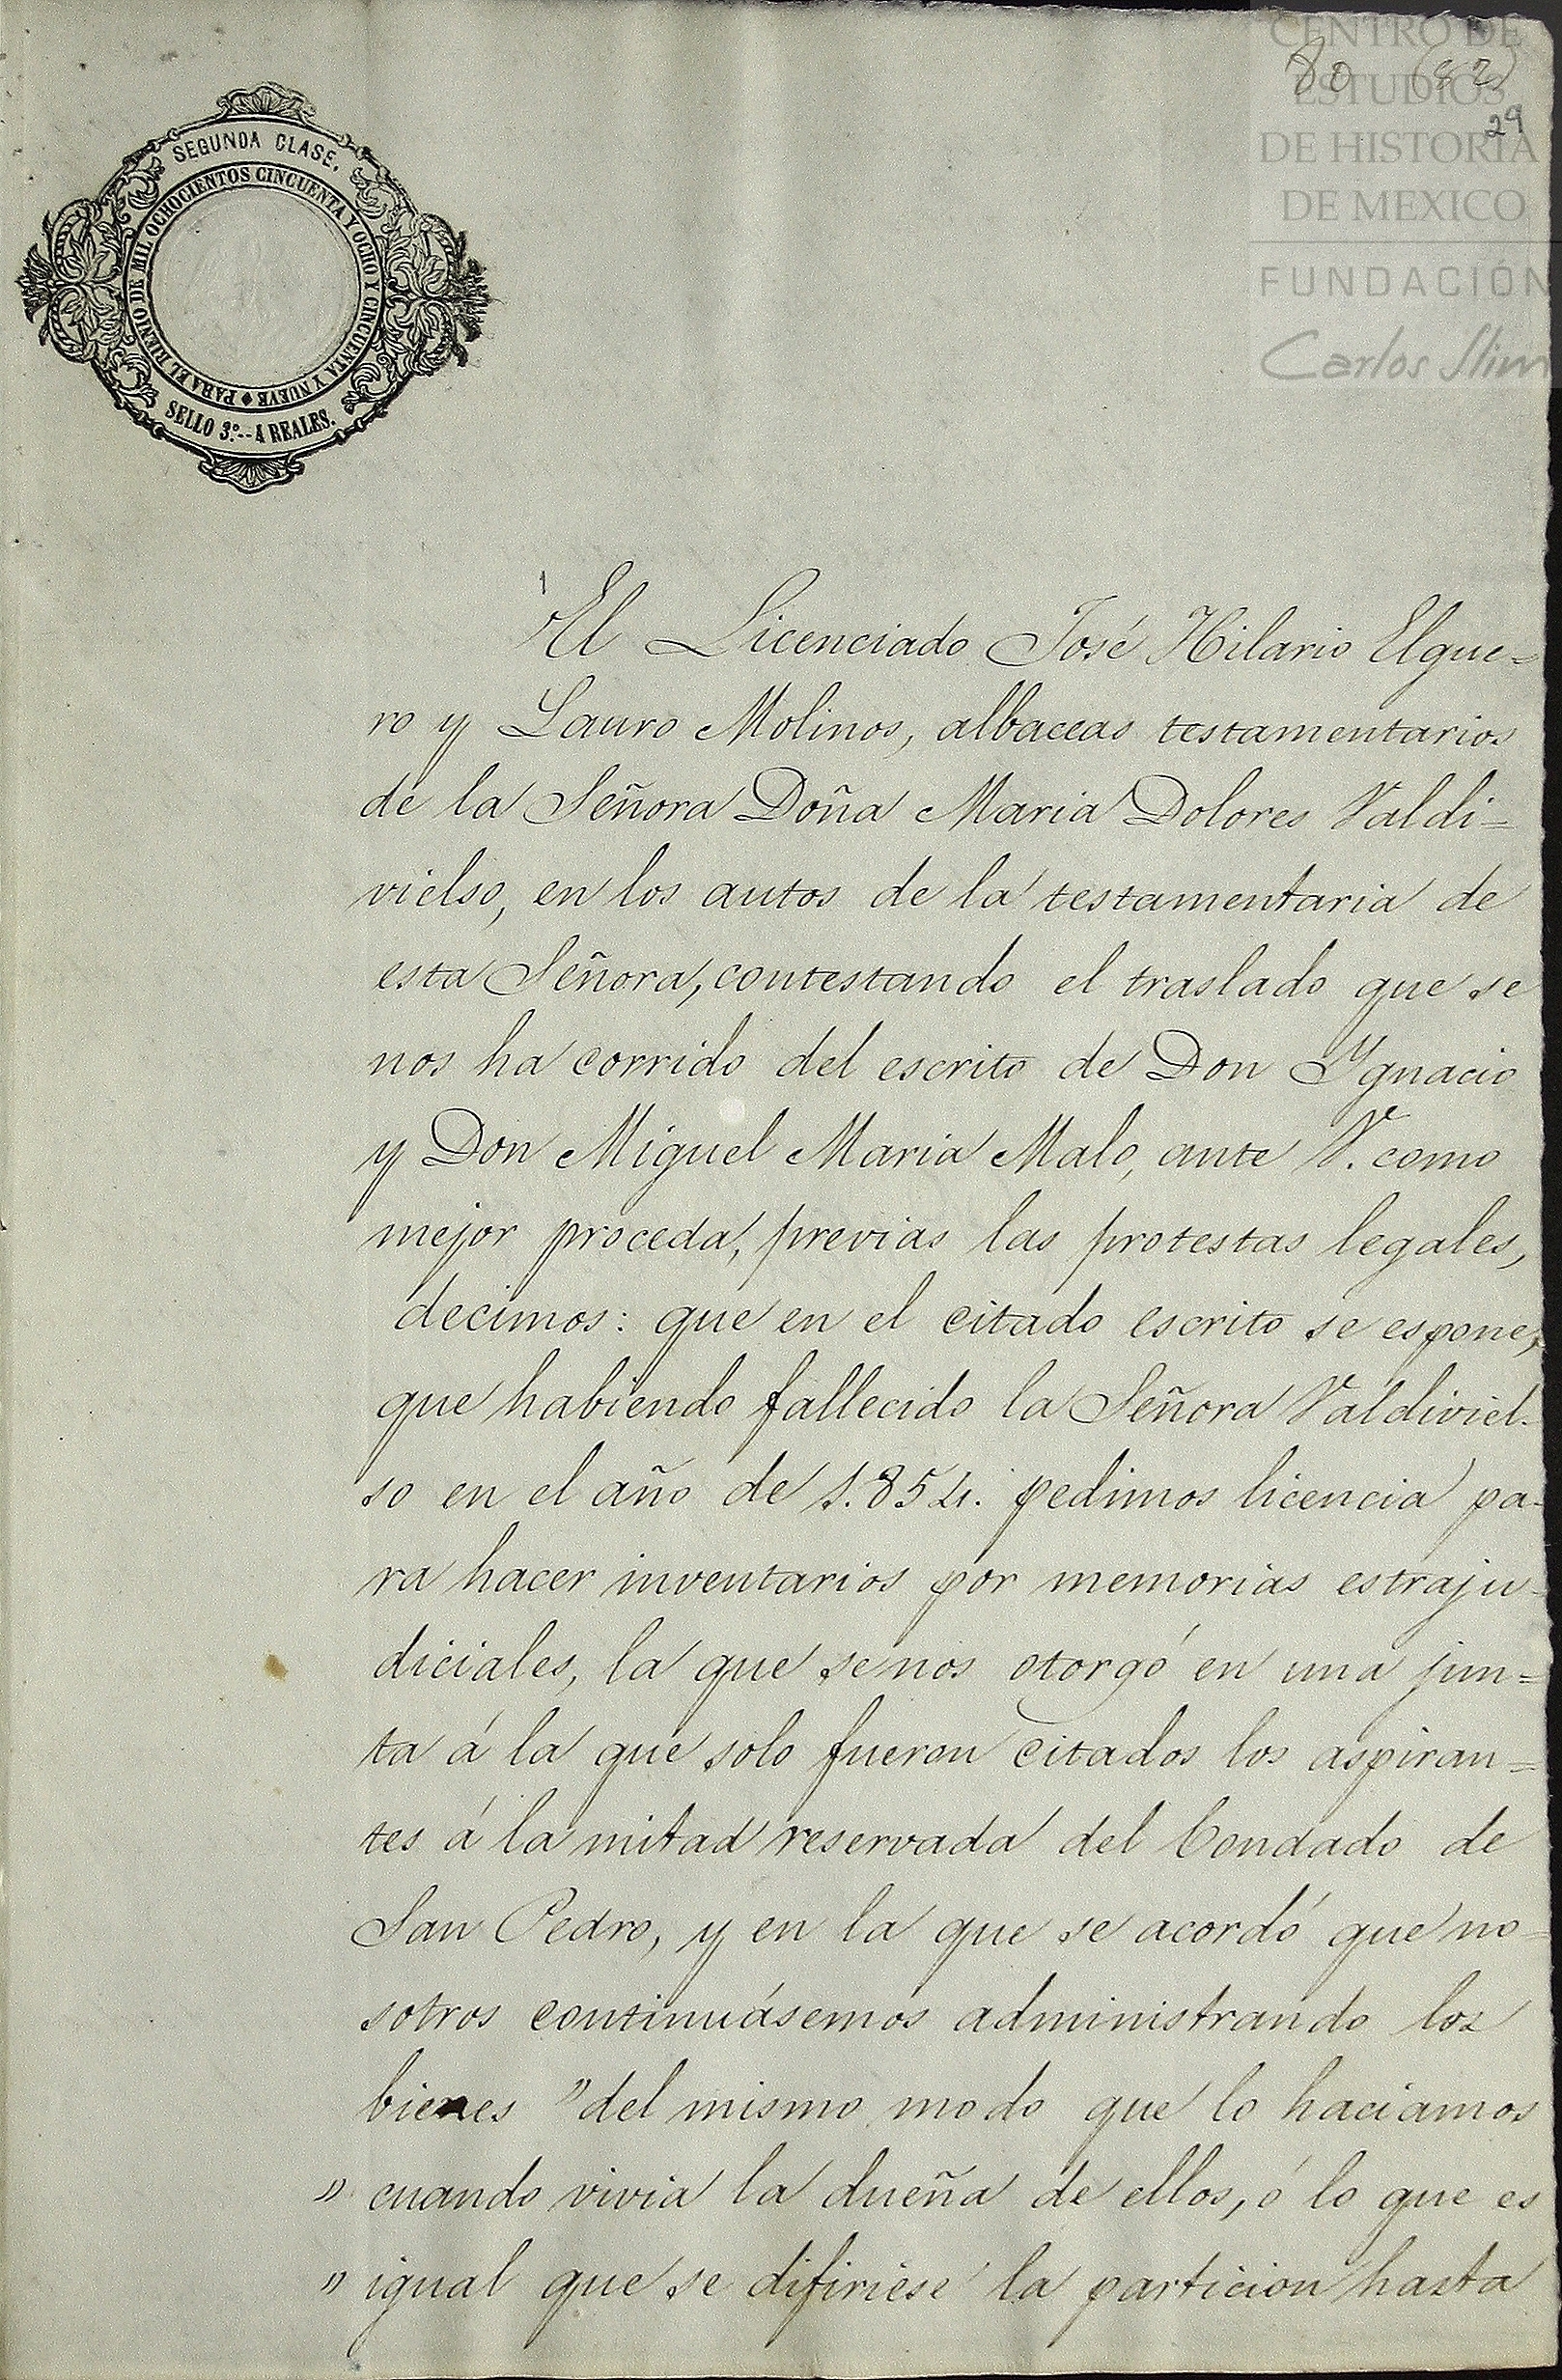 CENTRO DE
ESTUDIOS
DE HISTORIA
DE MEXICO
FUNDACIÓN
Carlos Slim
80 (82)
29
SEGUNDA CLASE.
PARA EL BIENIO DE MIL OCHOCIENTOS CINCUENTA Y OCHO Y CINCUENTA Y NUEVE
SELLO 3º.--4 REALES.
El Licenciado José Hilario Elgue=
ro y Lauro Molinos, albaceas testamentarios
de la Señora Doña Maria Dolores Valdi=
vielso, en los autos de la testamentaria de
esta Señora, contestando el traslado que se
nos ha corrido del escrito de Don Ygnacio
y Don Miguel Maria Malo, ante V. como
mejor proceda, previas las protestas legales,
decimos: que en el citado escrito se espone,
que habiendo fallecido la Señora Valdiviel-
so en el año de 1.854. pedimos licencia pa-
ra hacer inventarios por memorias estraju-
diciales, la que se nos otorgó en una jun=
ta á la que solo fueron citados los aspiran=
tes á la mitad reservada del Condado de
San Pedro, y en la que se acordó que no=
sotros continuásemos administrando los
bienes "del mismo modo que lo haciamos
" cuando vivia la dueña de ellos, ó lo que es
" igual que se difiriese la particion hasta